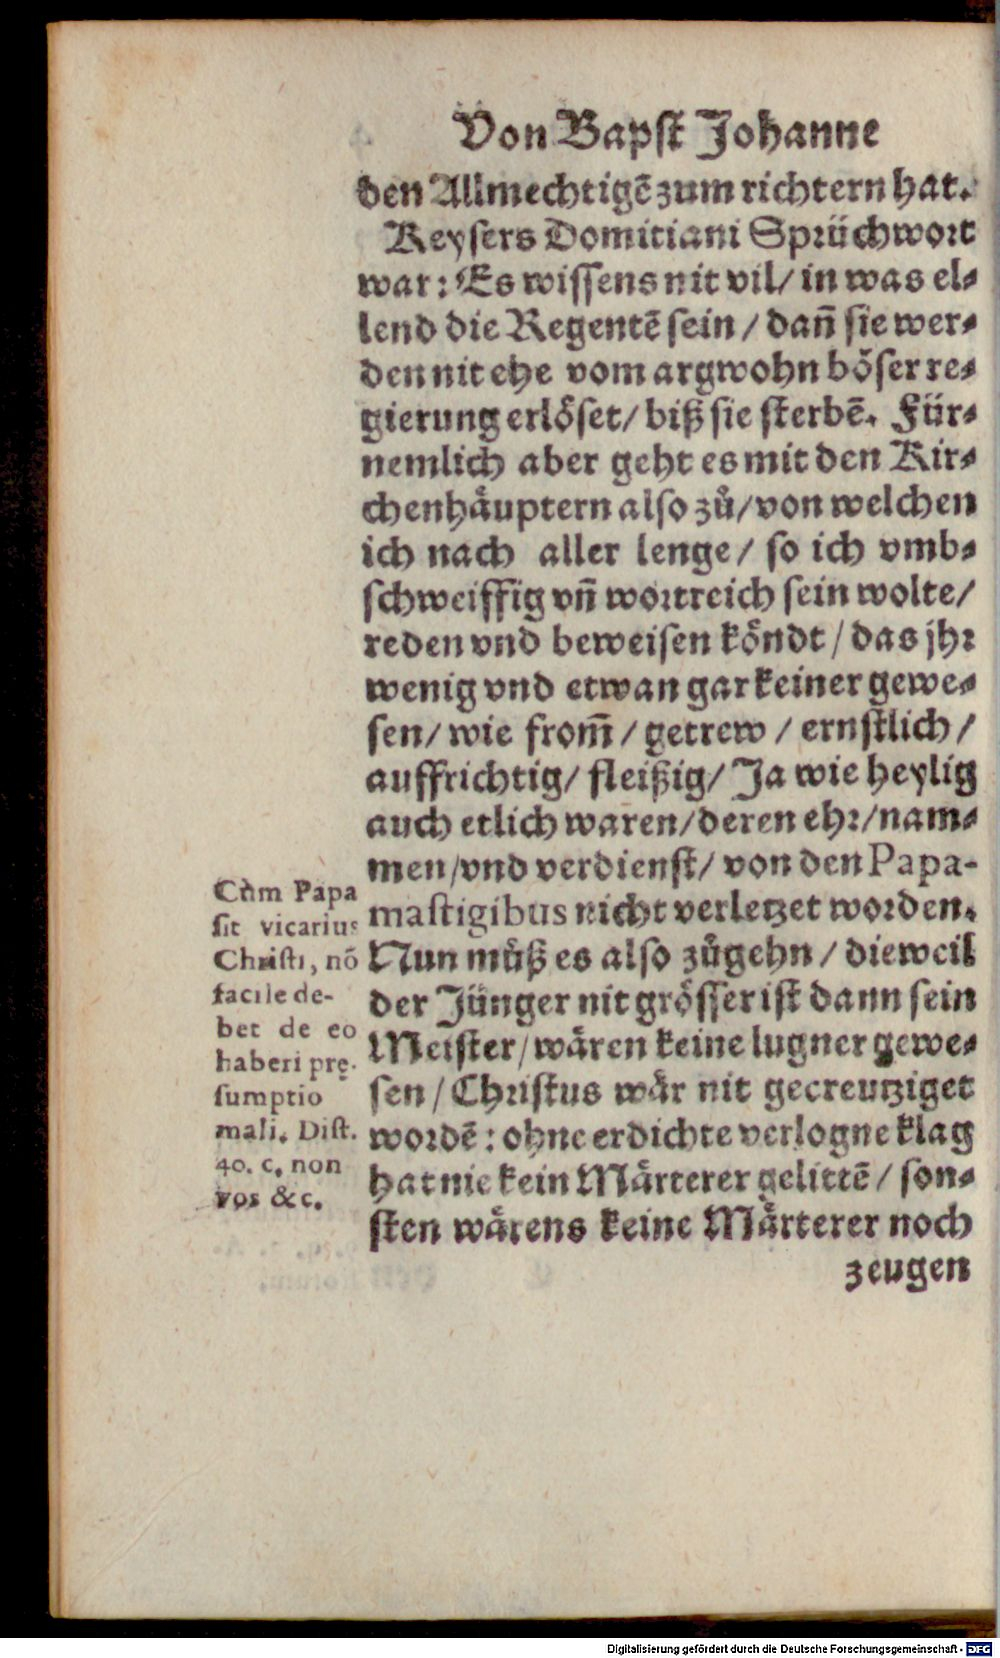 Von Bapst Johanne
den Allmechtigẽ zum richtern hat.
Keysers Domitiani Sprüchwort
war: Es wissens nit vil/ in was el⸗
lend die Regentẽ sein / dañ sie wer⸗
den nit ehe vom argwohn böser re⸗
gierung erlöset/ biß sie sterbẽ. Für⸗
nemlich aber geht es mit den Kir⸗
chenhäuptern also zů/ von welchen
ich nach aller lenge/ so ich vmb⸗
schweiffig vñ wortreich sein wolte/
reden vnd beweisen köndt / das jhr
wenig vnd etwan gar keiner gewe⸗
sen/ wie from̃ / getrew / ernstlich /
auffrichtig/ fleißig/ Ja wie heylig
auch etlich waren/ deren ehr/ nam⸗
men/ vnd verdienst/ von den Papa-
mastigibus nicht verletzet worden.
Nun můß es also zůgehn / dieweil
der Jünger nit grösser ist dann sein
Meister/ wären keine lugner gewe⸗
sen / Christus wär nit gecreutziget
wordẽ: ohne erdichte verlogne klag
hat nie kein Märterer gelittẽ / son⸗
sten wärens keine Märterer noch
zeugen
Cùm Papa
sit vicarius
Christi, nõ
facile de-
bet de eo
haberi prę-
sumptio
mali. Dist.
40. c. non
vos &c.
Digitalisierung gefördert durch die Deutsche Forschungsgemeinschaft - DFG